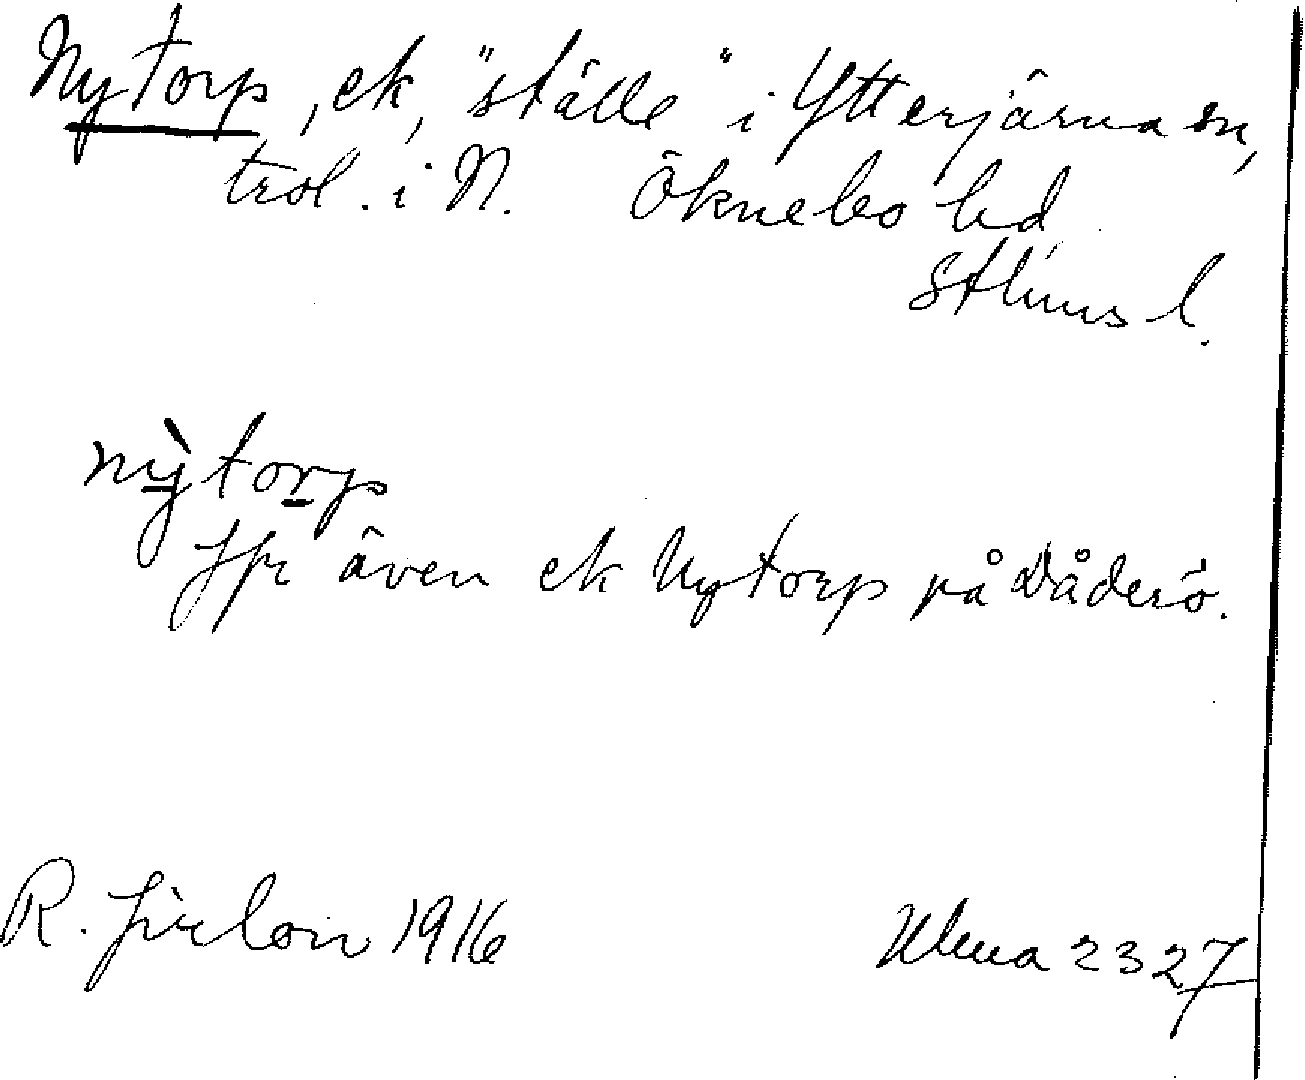 Nytorp, ek, "ställe" i Ytterjärna sn,
trol. i N. Öknebo hd
Sthms l.
nỳtorp
Jfr även ek Nytorp på Dåderö.
R. Jirlow 1916
Ulma 2327